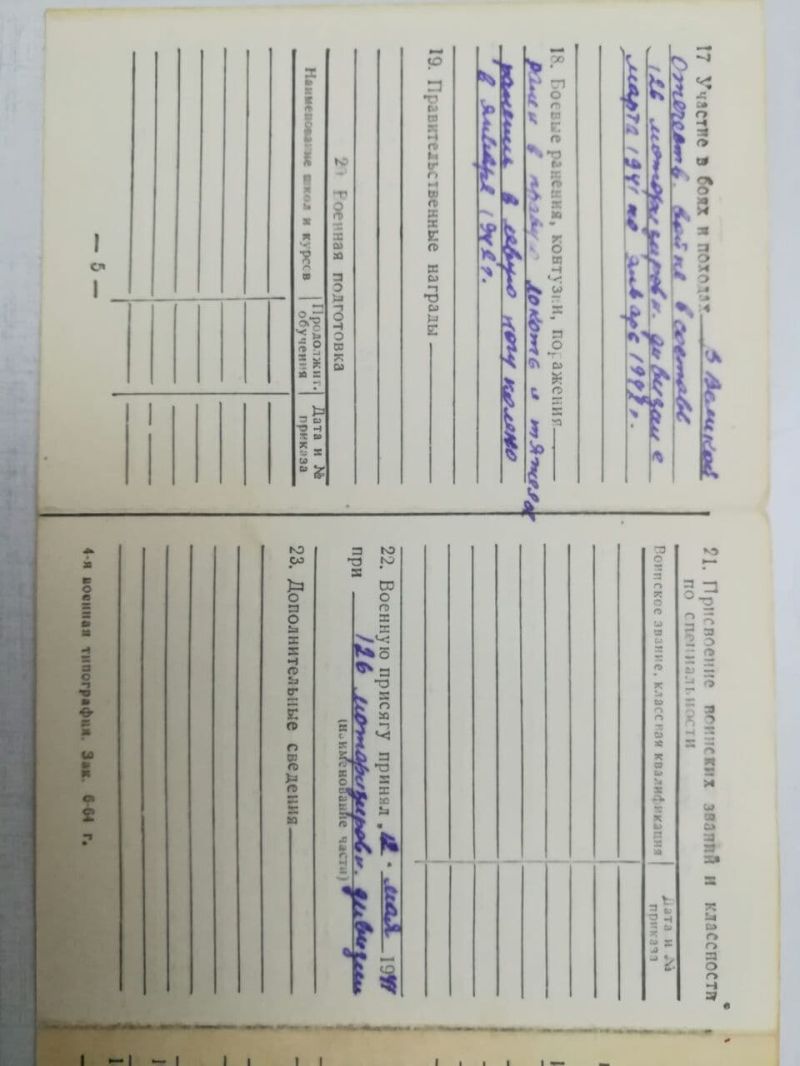 17 Участие в боях и походах В Великой
отечеств. войне в составе
126 моторизировн. дивизии с
марта 1941 по январь 1942 г.
18. Боевые ранения, контузии, поражения
ранен в правую локоть и тяжелое
ранения в левую ногу колено
в январе 1942 г.
19. Правительственные награды
20 Военная подготовка
Наименование школ и курсов
Продолжит. обучения
Дата и № приказа
— 5 —
21. Присвоение воинских званий и классности
по специальности
Воинское звание, классная квалификация
Дата и № приказа
22. Военную присягу принял „12" мая 1941
при 126 моторизировн. дивизии
(наименование части)
23. Дополнительные сведения
4-я военная типография. Зак. 6-64 г.